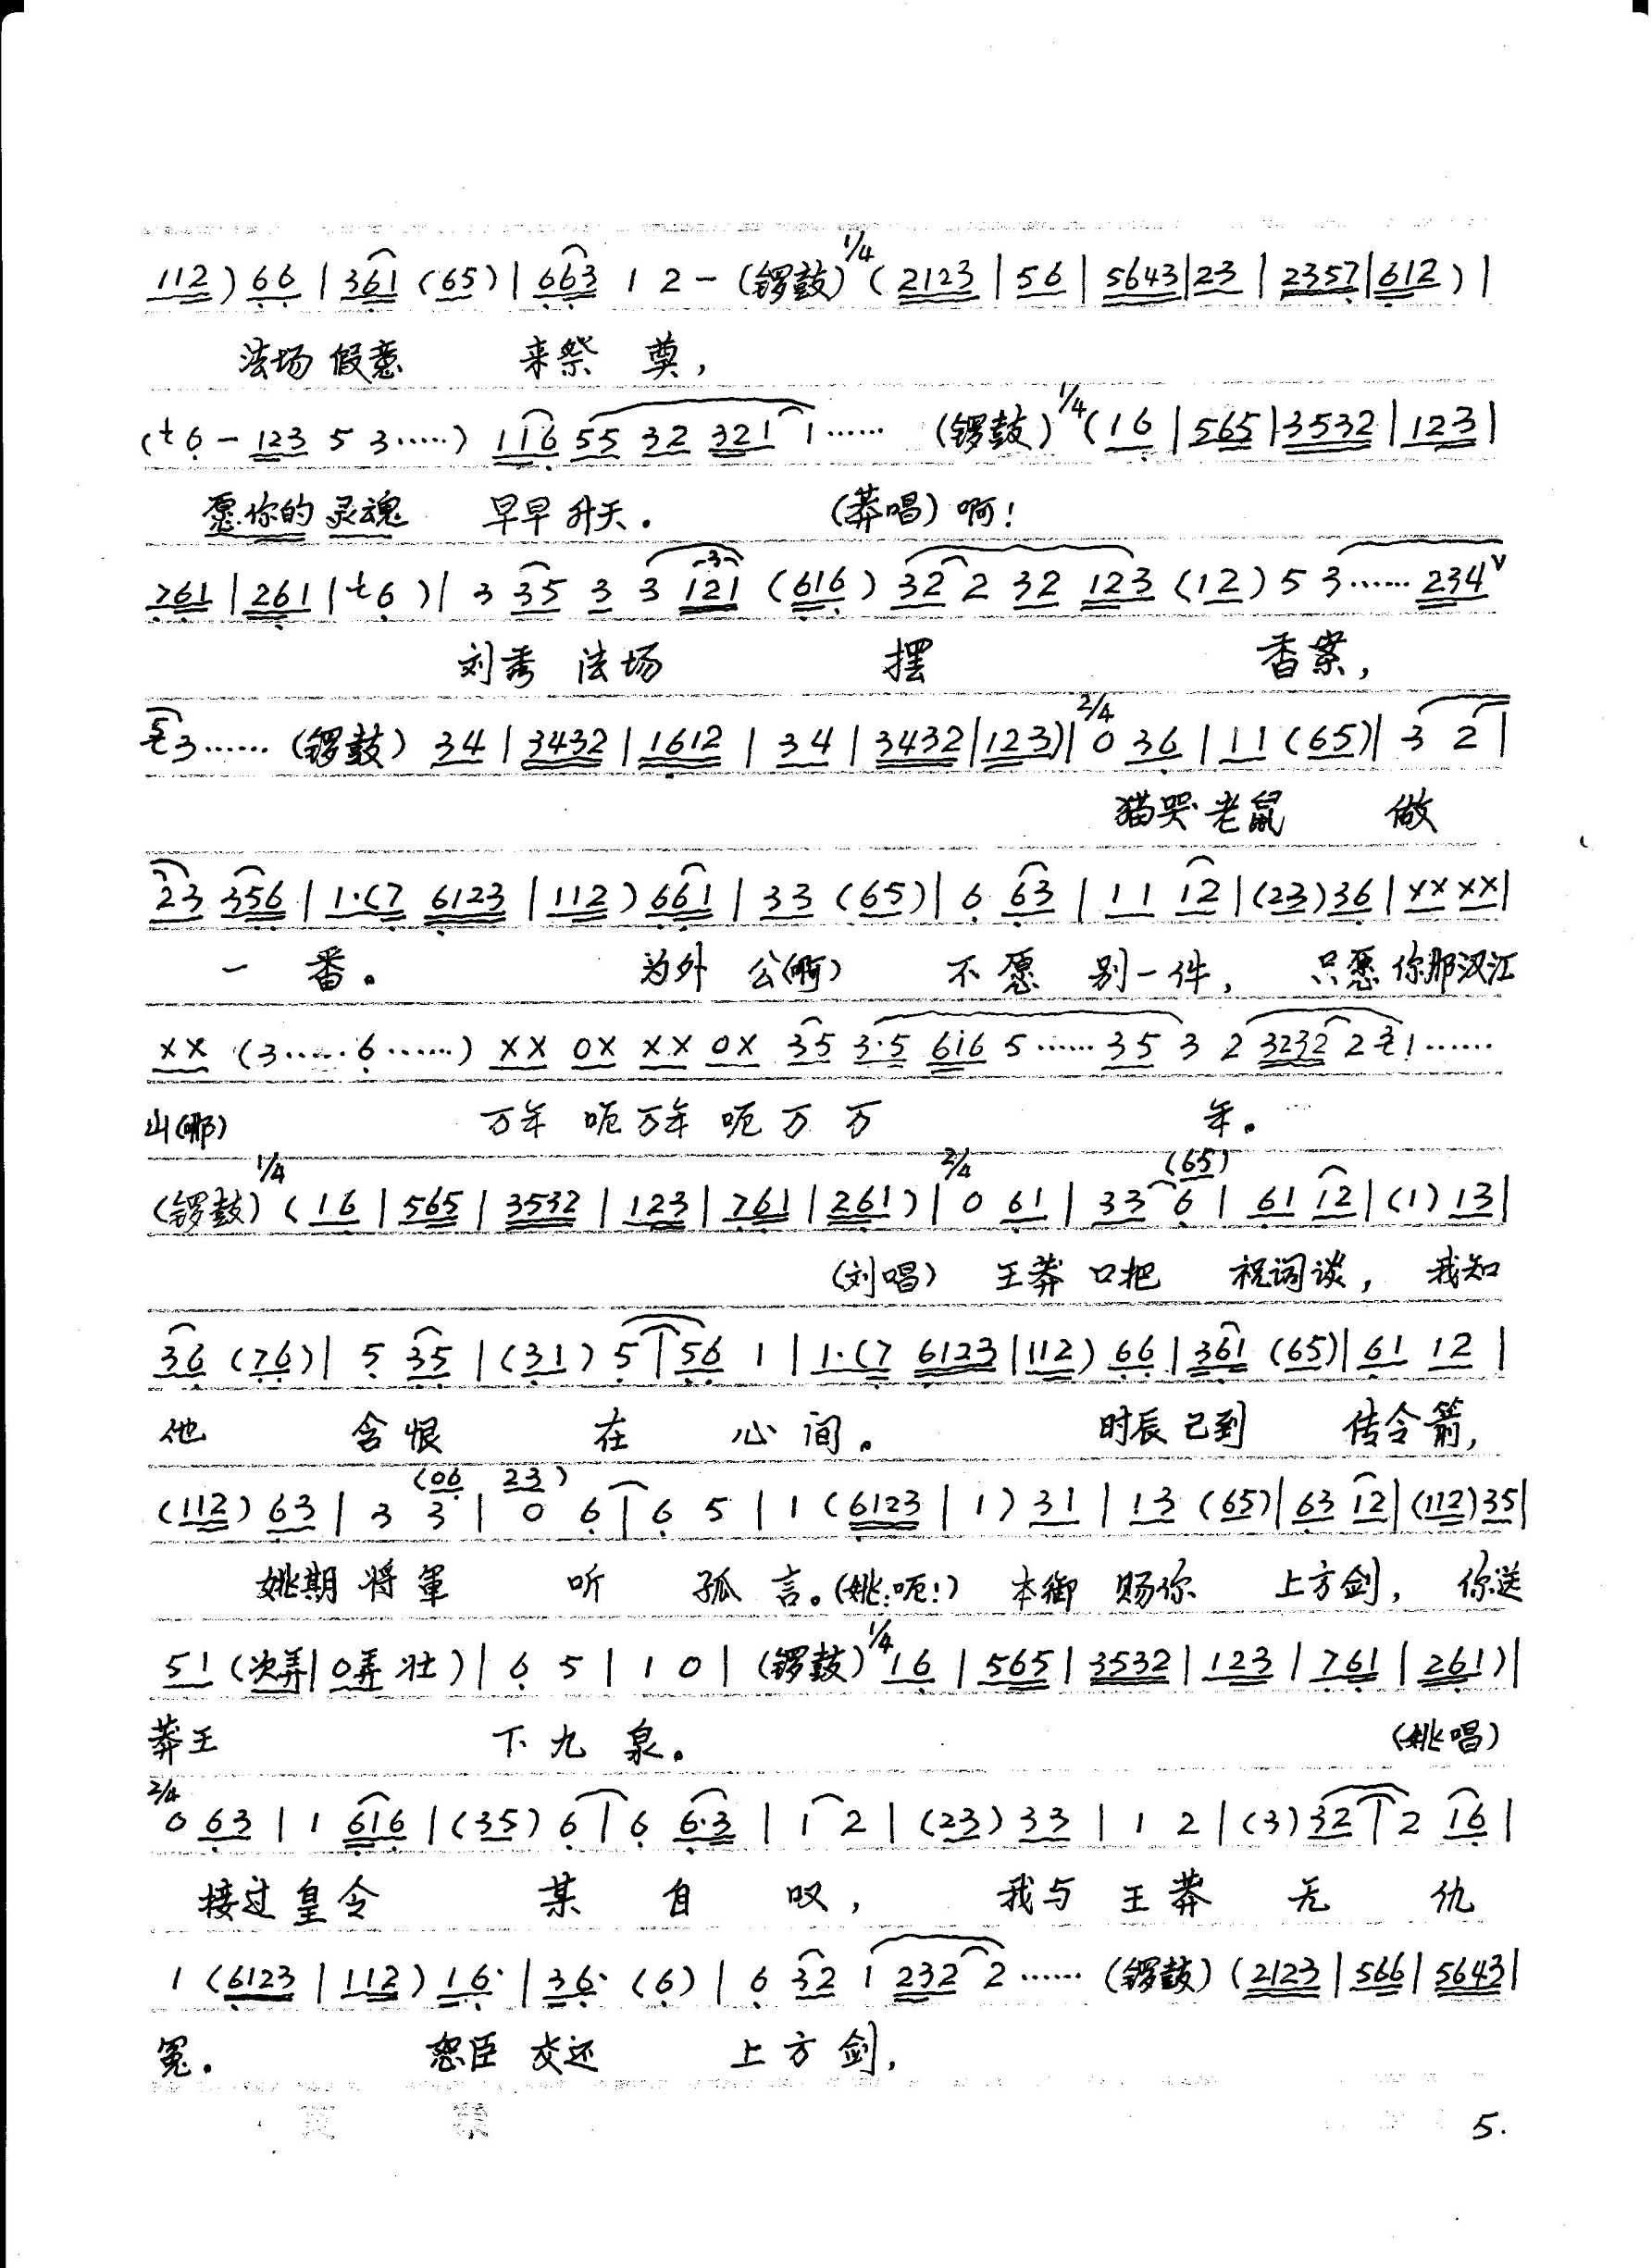 112) 66 | 361 (65) | 663 1 2 - (锣鼓) 1/4 ( 2123 | 56 | 5643 | 23 | 2357 | 612 ) |
法场 假意 来祭 奠,
(t6 - 123 5 3……) 116 55 32 321 1…… (锣鼓) 1/4 (16 | 565 | 3532 | 123 |
愿你的 灵魂 早早 升天. (莽唱) 啊!
761 | 261 | t6 ) | 3 35 3 3 121 (616) 32 2 32 123 (12) 5 3…… 234 v
刘秀 法场 摆 香案,
3…… (锣鼓) 34 | 3432 | 1612 | 34 | 3432 | 123) | 2/4 0 36 | 11 (65) | 3 2 |
猫哭老鼠 做
23 356 | 1·(7 6123 | 112 ) 661 | 33 (65) | 6 63 | 11 12 | (23) 36 | XX XX |
一 番。 为外 公(啊) 不愿 别一件, 只愿 你那汉江
XX (3……6……) XX 0X XX 0X 35 3·5 616 5…… 35 3 2 3232 2 1……
山(哪) 万年 呃万年 呃 万 万 年。
(锣鼓) 1/4 (16 | 565 | 3532 | 123 | 761 | 261 ) | 2/4 0 61 | 33 6 (65) | 61 12 | (1) 13 |
(刘唱) 王莽 口把 祝词谈, 我知
36 (76) | 5 35 | (31) 5 | 56 1 | 1·(7 6123 | 112) 66 | 361 (65) | 61 12 |
他 含恨 在 心 间。 时辰 已到 传令箭,
(112) 63 | 3 3 (06 | 23) 0 6 | 6 5 | 1 (6123 | 1 ) 31 | 13 (65) | 63 12 | (112) 35 |
姚期 将军 听 孤 言。(姚:呃!) 本御 赐你 上方剑, 你送
51 (次弄 | 0弄 壮) | 6 5 | 1 0 | (锣鼓) 1/4 16 | 565 | 3532 | 123 | 761 | 261) |
莽王 下 九 泉。 (姚唱)
2/4 0 63 | 1 616 | (35) 6 | 6 6·3 | 1 2 | (23) 33 | 1 2 | (3) 32 | 2 16 |
接过 皇令 某 自 叹, 我与 王莽 无 仇
1 (6123 | 112) 16· | 36· (6) | 6 32 1 232 2…… (锣鼓) (2123 | 566 | 5643 |
冤. 恕臣 交还 上 方 剑,
5.